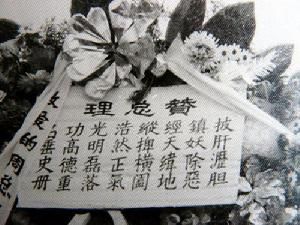 赞总理
披肝瀝胆
鎮妖除惡
經天緯地
縱捭橫闔
浩然正氣
光明磊落
功高德重
名垂史册
敬爱的周总